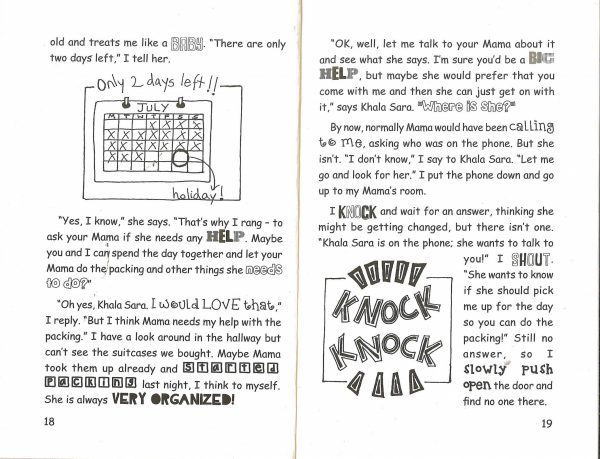 old and treats me like a BABY. "There are only
two days left," I tell her.
Only 2 days left!!
JULY
M T W T F S S
holiday!
"Yes, I know," she says. "That's why I rang – to
ask your Mama if she needs any HELP. Maybe
you and I can spend the day together and let your
Mama do the packing and other things she needs
to do?"
"Oh yes, Khala Sara. I would LOVE that,"
I reply. "But I think Mama needs my help with the
packing." I have a look around in the hallway but
can't see the suitcases we bought. Maybe Mama
took them up already and STARTED
PACKING last night, I think to myself.
She is always VERY ORGANIZED!
18
"OK, well, let me talk to your Mama about it
and see what she says. I'm sure you'd be a BIG
HELP, but maybe she would prefer that you
come with me and then she can just get on with
it," says Khala Sara. "Where is she?"
By now, normally Mama would have been calling
to me, asking who was on the phone. But she
isn't. "I don't know," I say to Khala Sara. "Let me
go and look for her." I put the phone down and go
up to my Mama's room.
I KNOCK and wait for an answer, thinking she
might be getting changed, but there isn't one.
"Khala Sara is on the phone; she wants to talk to
you!" I SHOUT.
"She wants to know
if she should pick
me up for the day
so you can do the
packing!" Still no
answer, so I
slowly push
open the door and
find no one there.
KNOCK
KNOCK
19